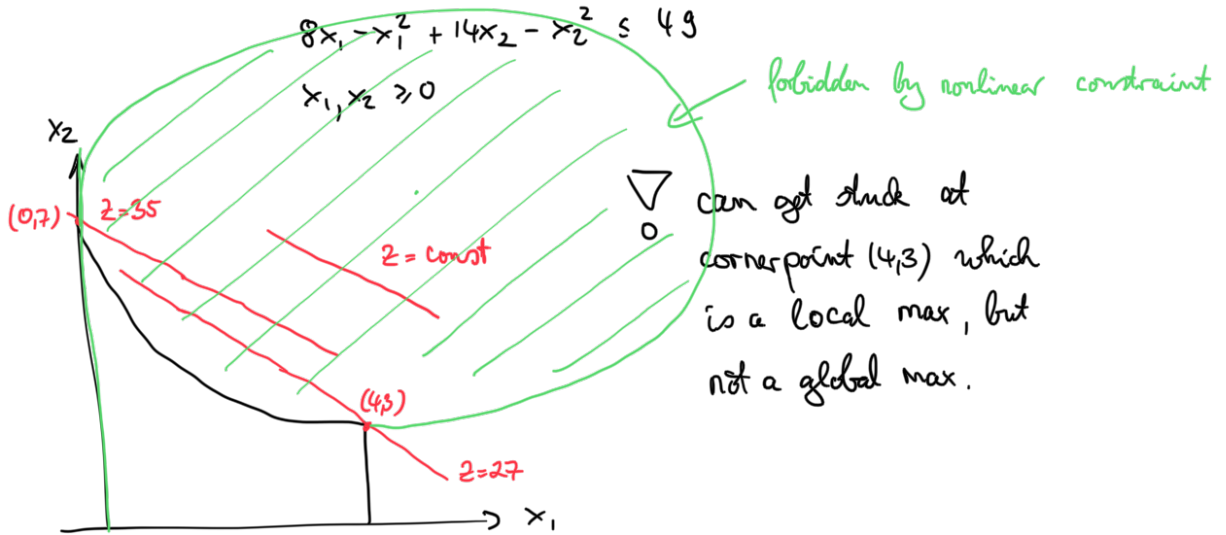 8x₁ - x₁² + 14x₂ - x₂² ≤ 49
x₁, x₂ ≥ 0
forbidden by nonlinear constraint
x₂
(0,7) Z=35
Z = const
can get stuck at
cornerpoint (4,3) which
is a local max, but
not a global max.
(4,3)
Z=27
x₁